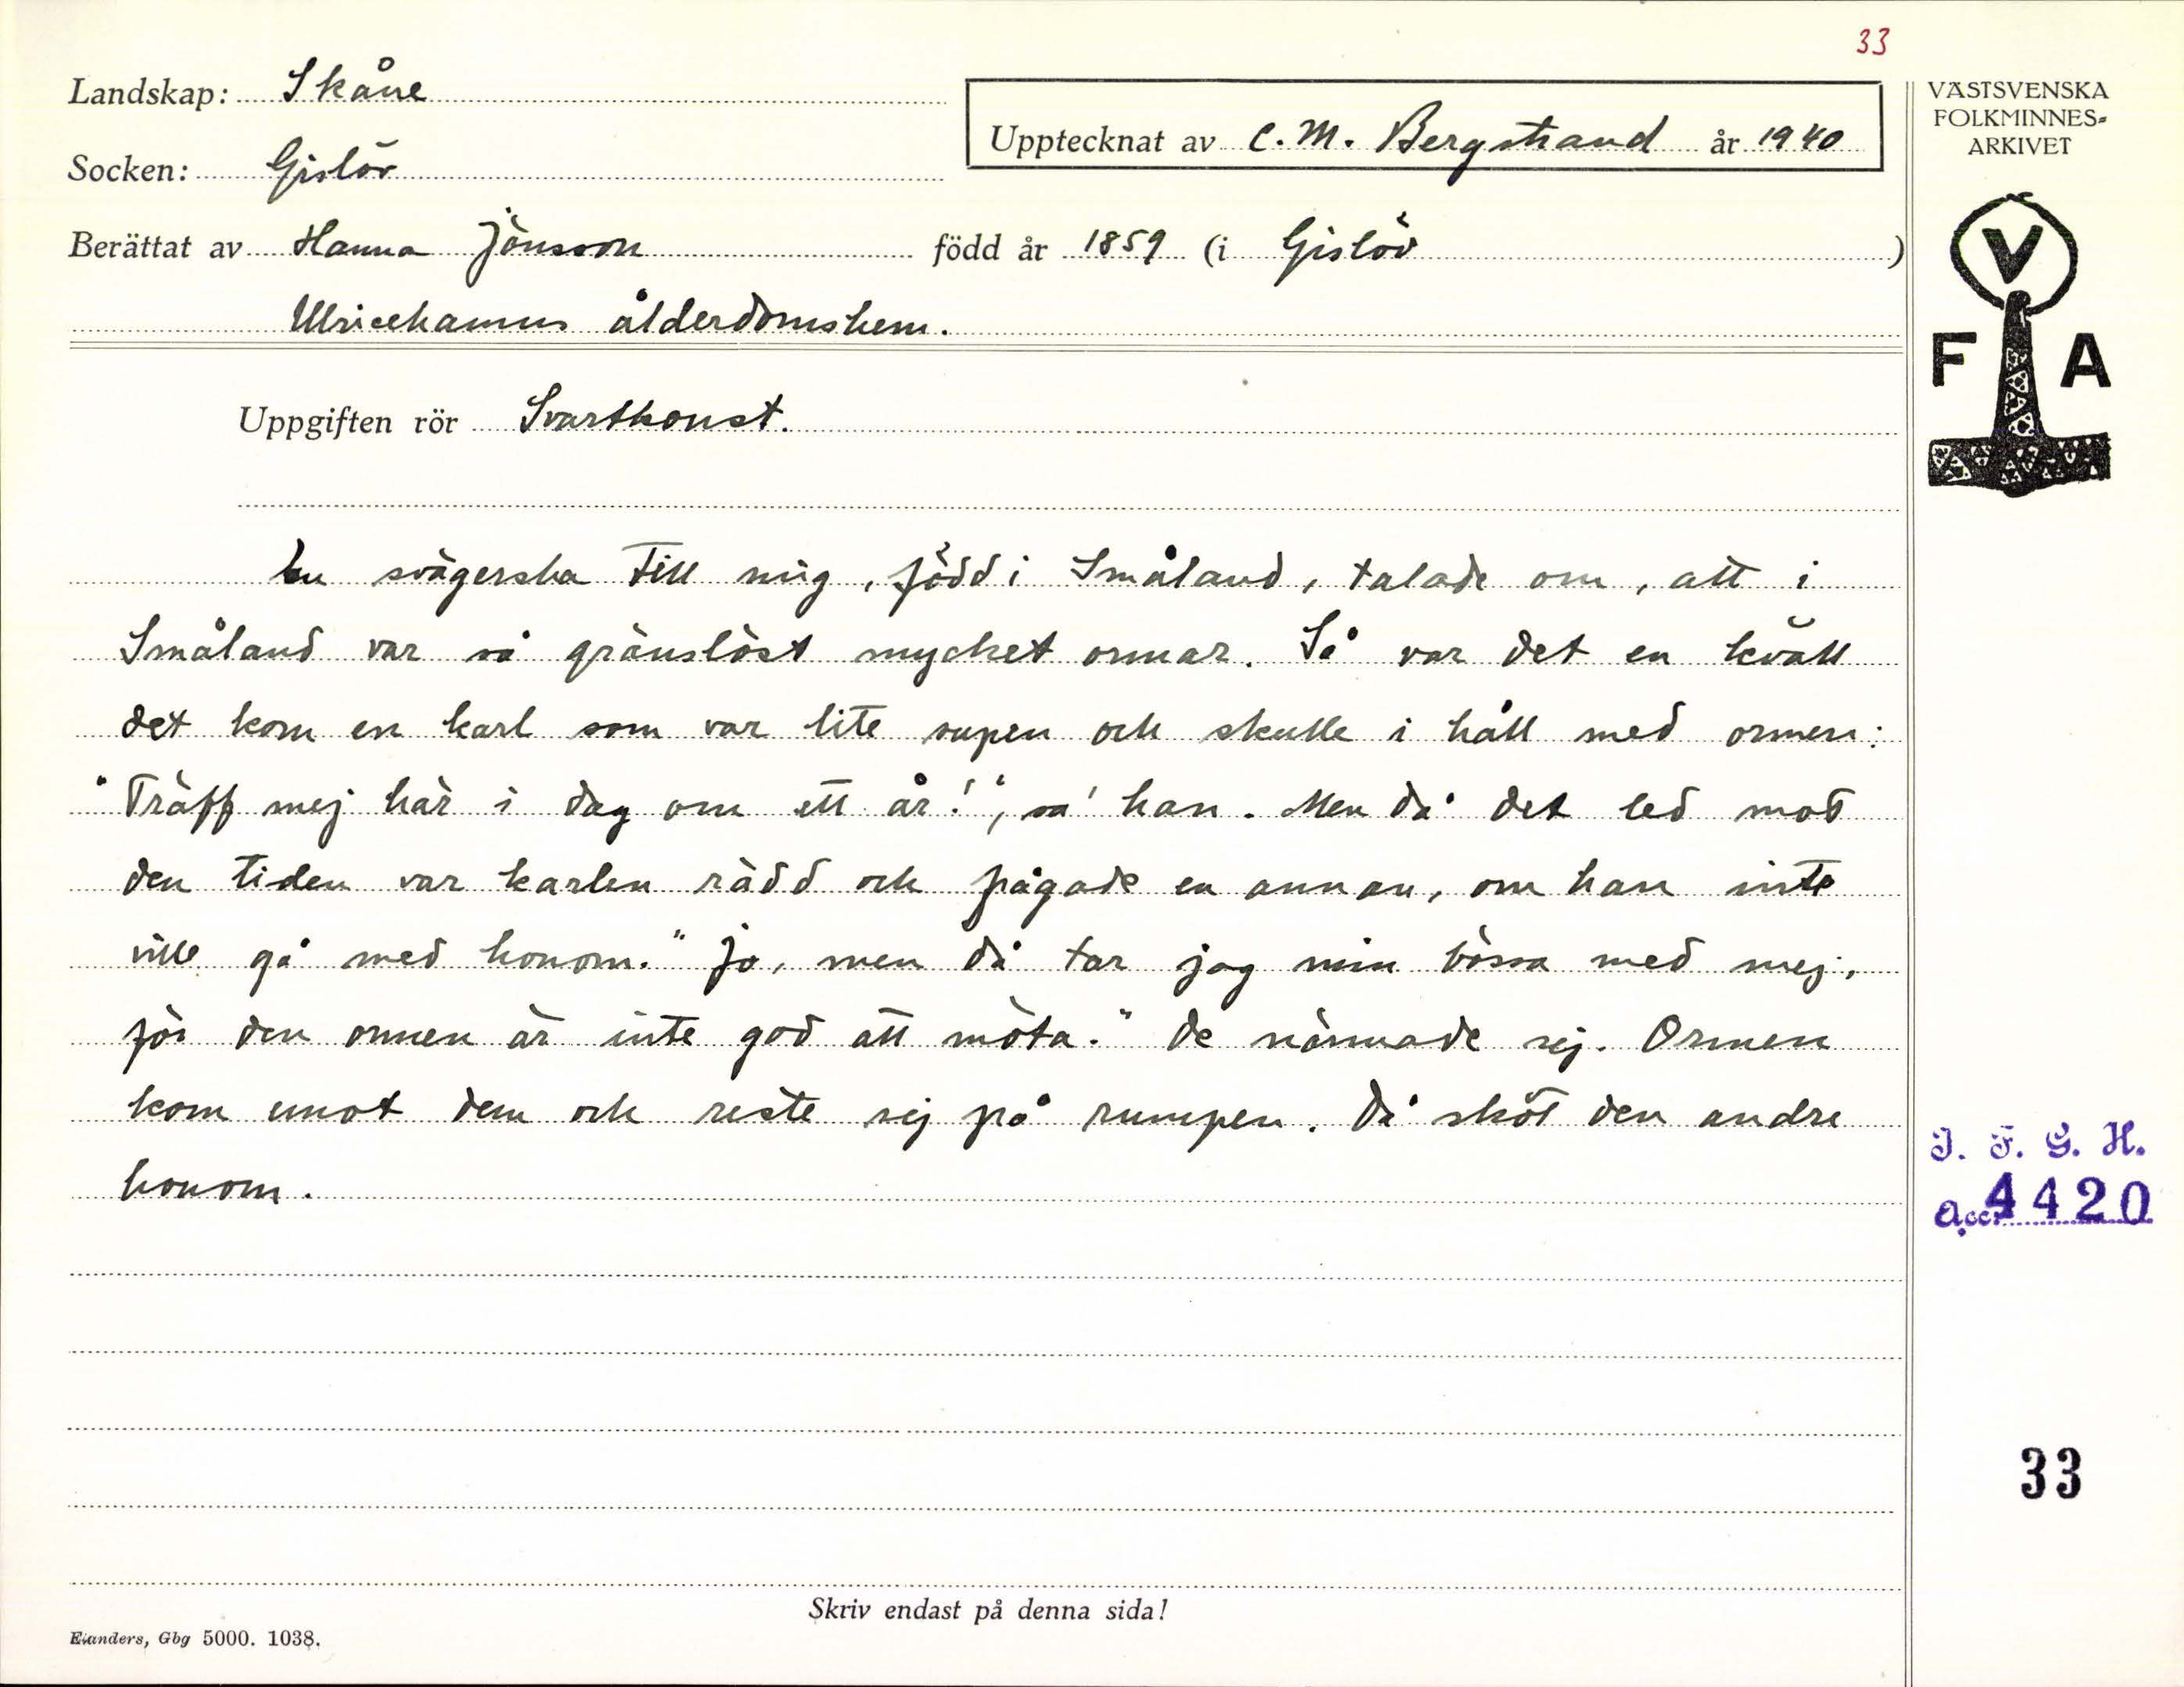 33
Landskap: Skåne
Upptecknat av C. M. Bergstrand år 1940
Socken: Gislöv
Berättat av Hanna Jönsson född år 1859 (i Gislöv)
Ulricehamns ålderdomshem.
Uppgiften rör Svartkonst.
En svägerska till mig, född i Småland, talade om, att i
Småland var så gränslöst mycket ormar. Så var det en kväll
det kom en karl som var lite supen och skulle i håll med ormen:
"Träff mej här i dag om ett år!", sa' han. Men då det led mot
den tiden var karlen rädd och frågade en annan, om han inte
ville gå med honom. "Jo, men då tar jag min bössa med mej,
för den ormen är inte god att möta." De närmade sej. Ormen
kom emot dem och reste sej på rumpen. Då sköt den andre
honom.
Skriv endast på denna sida!
Elanders, Gbg 5000. 1038.
VÄSTSVENSKA
FOLKMINNES-
ARKIVET
V
F A
I. F. G. H.
Acc. 4420
33